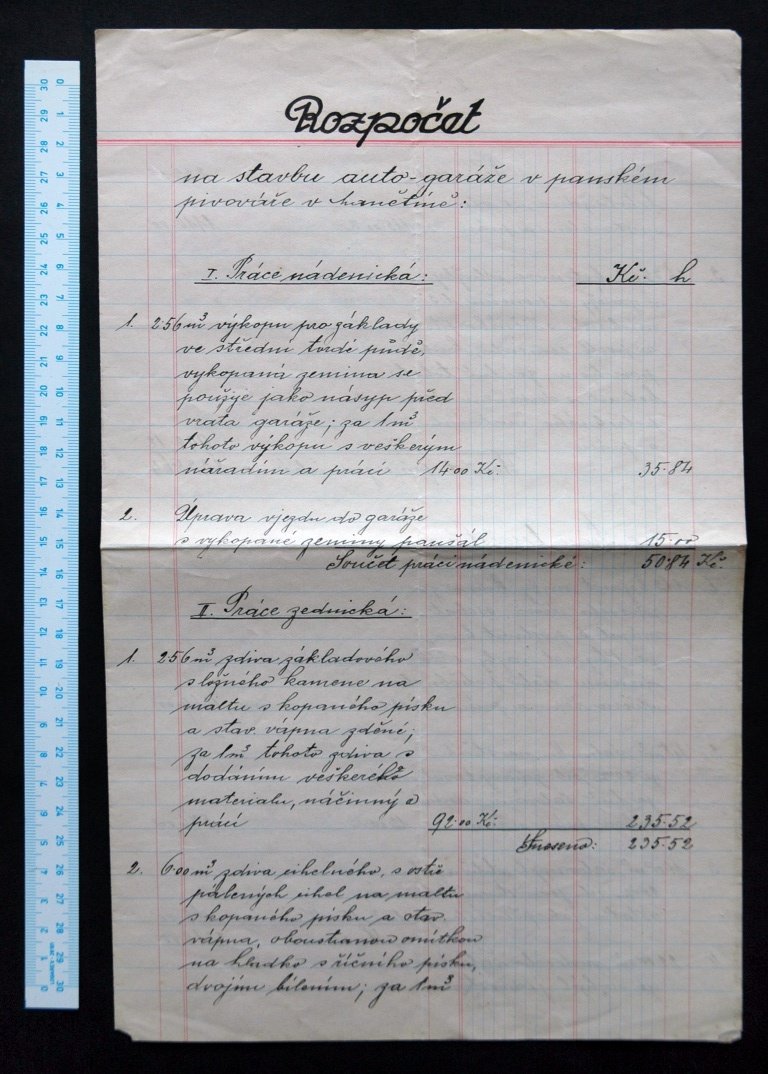 Rozpočet
na stavbu auto-garáže v panském
pivováře v :
I. Práce nádenická: Kč. h
1. 2·56 m³ výkopu pro základy
ve střední tvrdé půdě,
vykopaná zemina se
použije jako násyp před
vrata garáže; za 1 m³
tohoto výkopu s veškerým
nářadím a prácí 14·00 Kč. 35·84
2. Úprava vjezdu do garáže
s vykopané zeminy paušál 15·00
Součet prácí nádenické: 50·84 Kč.
II. Práce zednická:
1. 2·56 m³ zdiva základového
s ložného kamene na
maltu s kopaného písku
a stav. vápna zděné;
za 1 m³ tohoto zdiva s
dodáním veškerého
materialu, náčinný a
prácí 92·00 Kč. 235·52
Snoseno: 235·52
2. 6·00 m³ zdiva cihelného, s ostře
pálených cihel na maltu
s kopaného písku a stav.
vápna, oboustranou omítkou
na hladko s říčního písku,
dvojím bílením; za 1 m³